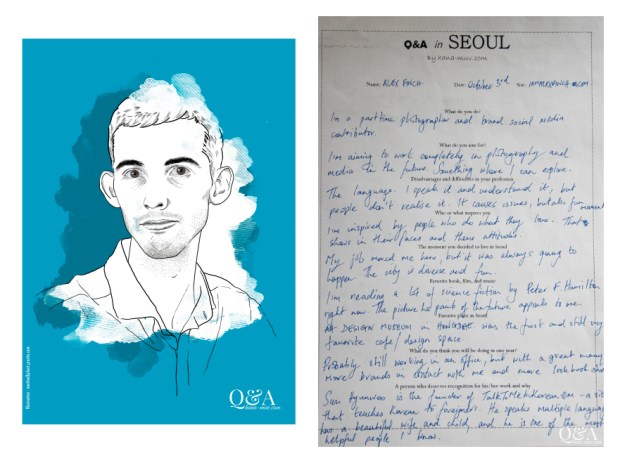 Q&A
xana-muv.com
Q&A in SEOUL
By xana-muv.com
Name: ALEX FINCH Date: October 3rd Site:
What do you do?
I'm a part time photographer and brand social media
contributor.
What do you aim for?
I'm aiming to work completely in photography and
media in the future. Something where I can explore.
Disadvantages and difficulties in your profession
The language. I speak it and understand it, but
people don't realise it. It causes issues, but also fun moments
Who or what inspires you
I'm inspired by people who do what they love. That
shows in their faces and there attitudes.
The moment you decided to live in Seoul
My job moved me here, but it was always going to
happen. The city is diverse and fun.
Favorite book, film, feel music
I'm reading a lot of science fiction by Peter F. Hamilton
right now. The picture he paints of the future appeals to me.
Favorite place in Seoul
DESIGN MUSEUM in was the first and still my
favorite cafe/design space.
What do you think you will be doing in one year?
Probably still working in an office, but with a great many
more brands in contact with me and more look books
A person who deserves recognition for his/her work and why
Sun Hyunwoo is the founder of TalkToMeInKorean.com - a site
that teaches korean to foreigners. He speaks multiple languages
has a beautiful wife and child, and he is one of the most
helpful people I know.
Q&A